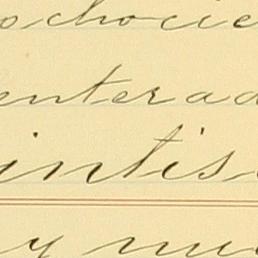 ochocie
enterad
intis
y mu